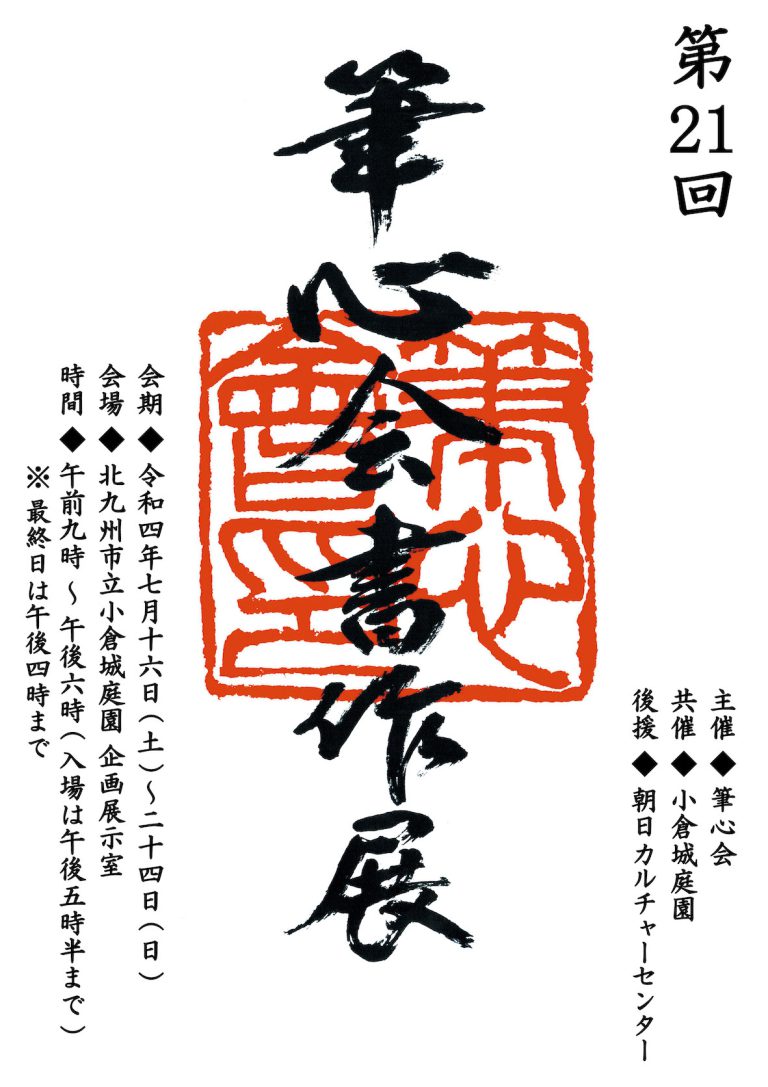 第21回
筆心会書作展
主催◆筆心会
共催◆小倉城庭園
後援◆朝日カルチャーセンター
会期◆令和四年七月十六日（土）～二十四日（日）
会場◆北九州市立小倉城庭園 企画展示室
時間◆午前九時～午後六時（入場は午後五時半まで）
※最終日は午後四時まで
筆心會印